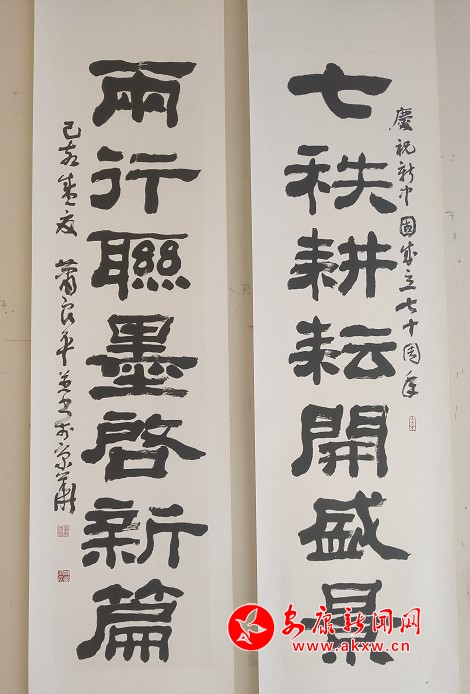 慶祝新中國成立七十周年
七秩耕耘開盛景
兩行聯墨啓新篇
己亥盛夏 蕭良平并書於京華
安康新闻网
www.akxw.cn